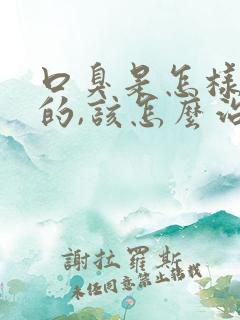 口臭是怎樣
的,該怎麼治
謝拉羅斯
未經同意禁止轉載